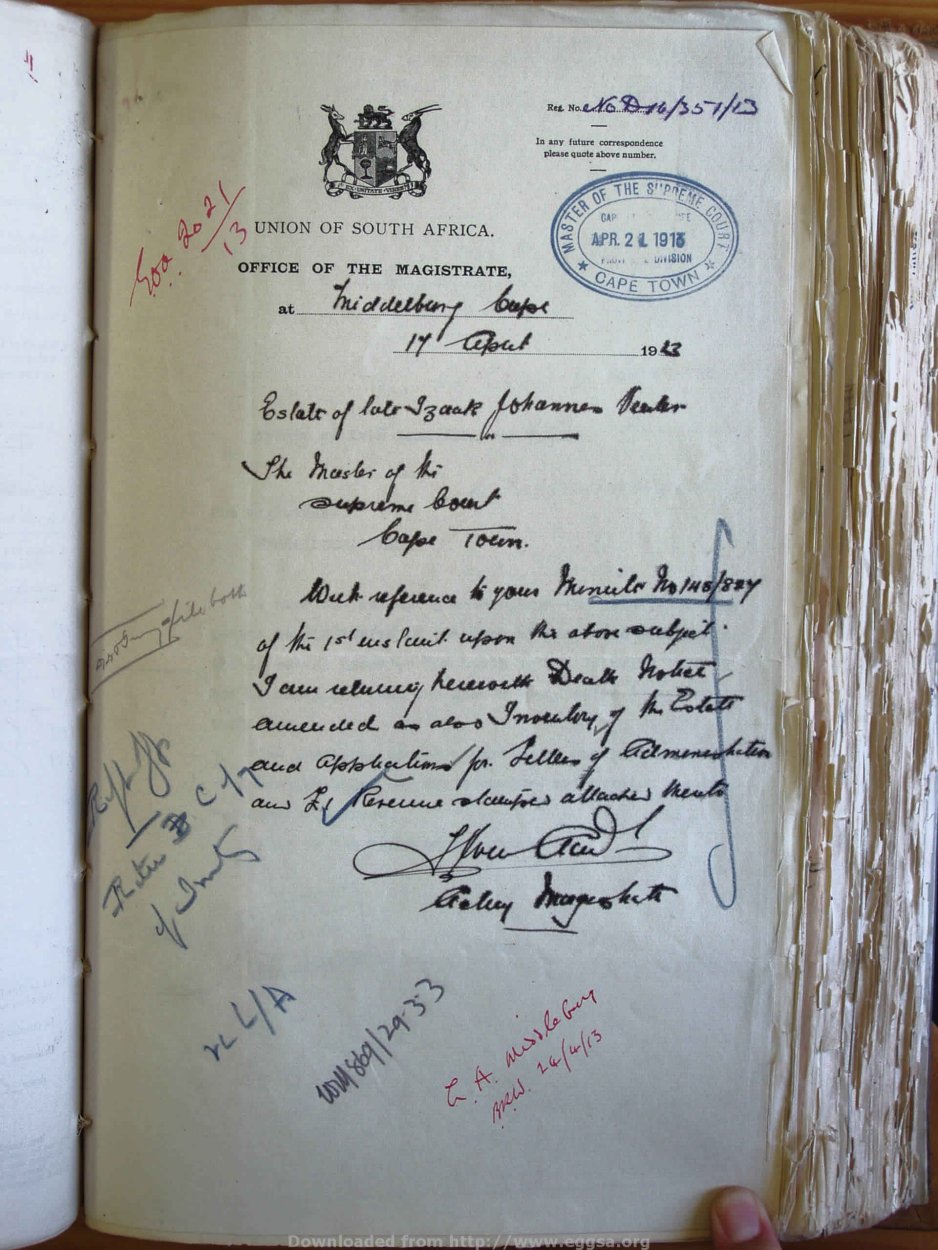 Reg. No. No D16/351/13
In any future correspondence
please quote above number.
EX UNITATE VIRES
MASTER OF THE SUPREME COURT
APR. 21 1913
DIVISION
CAPE TOWN
2021/13
UNION OF SOUTH AFRICA.
OFFICE OF THE MAGISTRATE,
at Middelburg Cape
17 April 1913
Estate of late Izaak Johannes Venter
The Master of the
Supreme Court
Cape Town.
With reference to your Minute No 148/887
of the 1st instant upon the above subject.
I am returning herewith Death Notice
amended as also Inventory of the Estate
and application for Letters of Administration
and £1 Revenue stamps attached thereto
Acting Magistrate
file both
L/A
29-3-3
L. A. Middleburg
24/4/13
Downloaded from http://www.eggsa.org